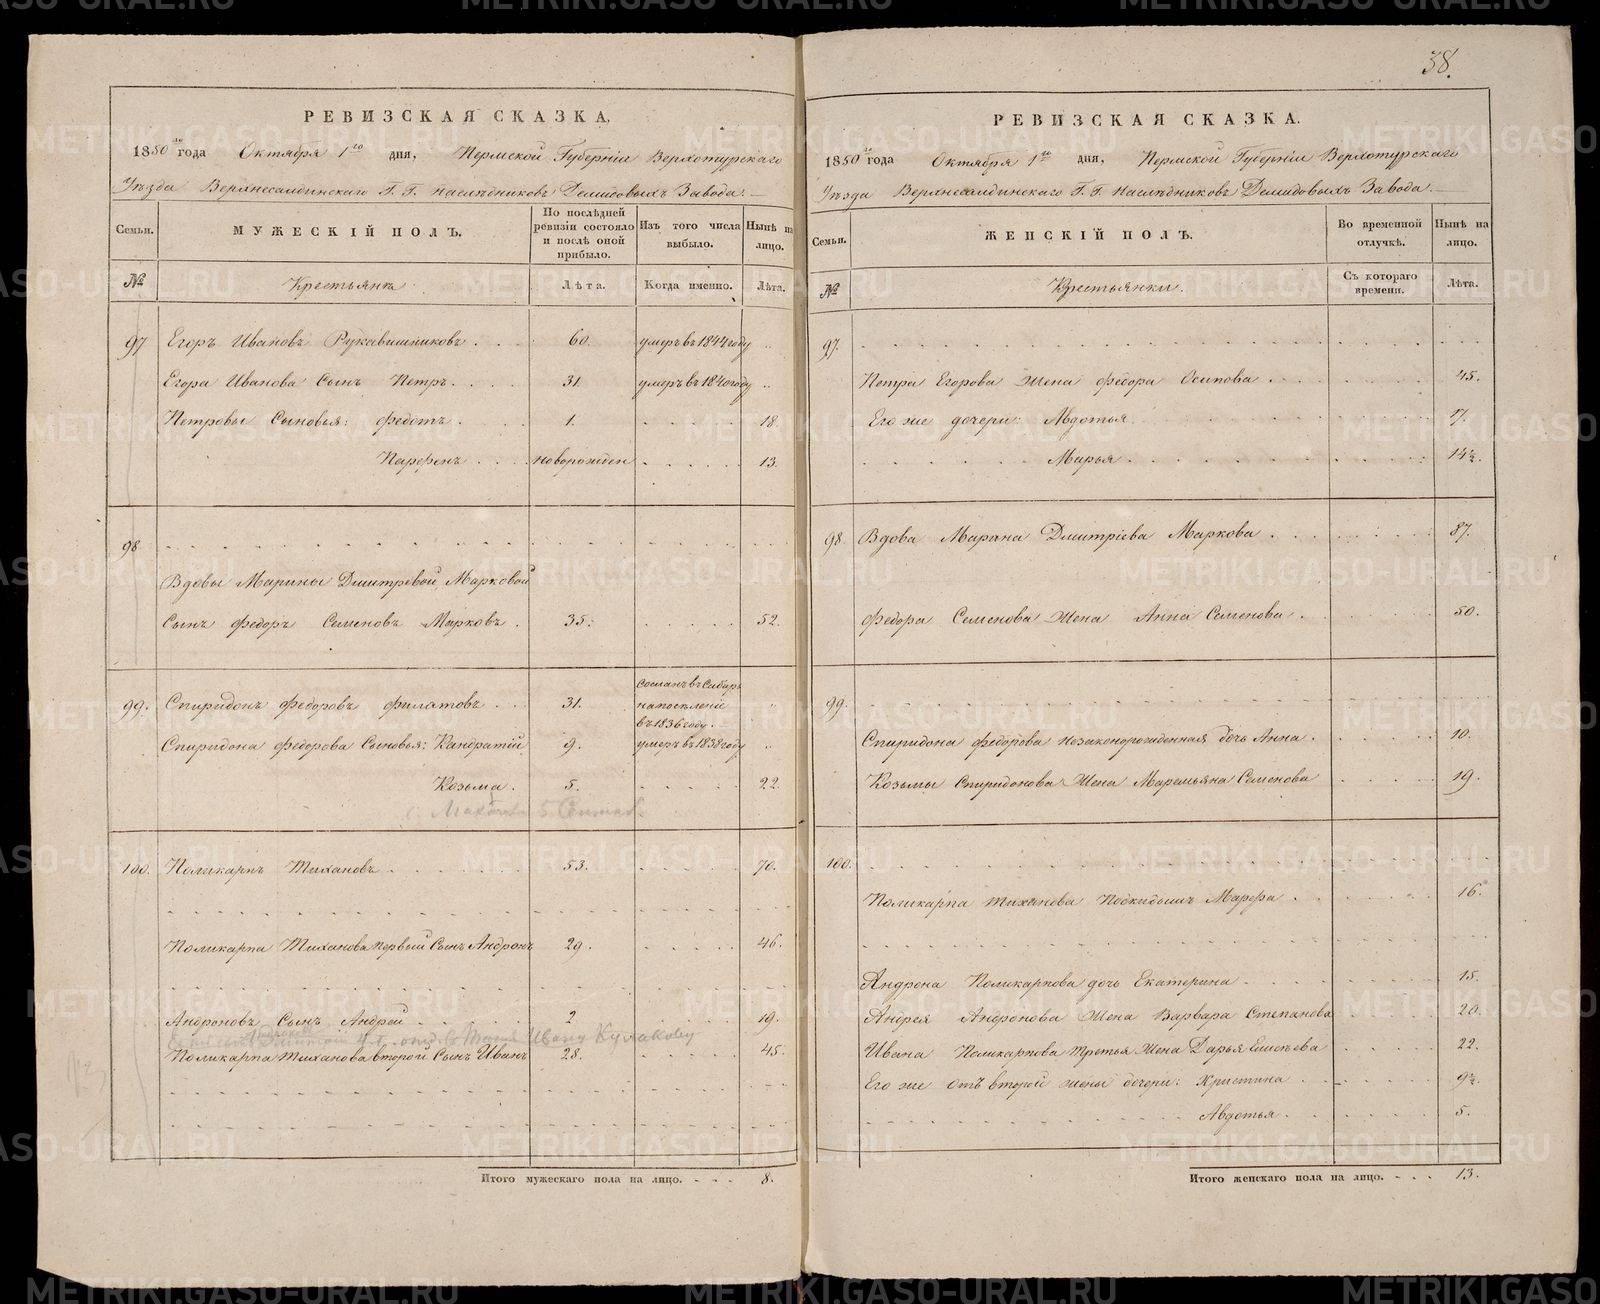 38.
РЕВИЗСКАЯ СКАЗКА.
1850го года Октября 1го дня, Пермской Губерніи Верхотурскаго
Уѣзда Верхнесалдинскаго Г. Г. наслѣдниковъ Демидовыхъ Завода.
Семьи. МУЖЕСКІЙ ПОЛЪ. По послѣдней ревизіи состояло и послѣ оной прибыло. Изъ того числа выбыло. Нынѣ на лицо.
№ Крестьянъ Лѣта. Когда именно. Лѣта.
97 Егоръ Ивановъ Рукавишниковъ 60. умеръ въ 1844 году
Егора Иванова Сынъ Петръ 31. умеръ въ 1840 году
Петровы Сыновья: Федотъ 1. 18.
Парфенъ новорожден 13.
98
Вдовы Марины Дмитревой Марковой
Сынъ Федоръ Семеновъ Марковъ 35. 52.
99. Спиридонъ Федоровъ Филатовъ 31. Сосланъ въ Сибирь на поселеніе въ 1836 году.
Спиридона Федорова Сыновья: Кандратій 9. умеръ въ 1838 году
Козьма 5. 22.
100. Поликарпъ Тихановъ 53. 70.
Поликарпа Тиханова первый Сынъ Андронъ 29. 46.
Андроновъ Сынъ Андрей 2 19.
Ивану Кулакову
Поликарпа Тиханова второй Сынъ Иванъ 28. 45.
Итого мужескаго пола на лицо. 8.
РЕВИЗСКАЯ СКАЗКА.
1850го года Октября 1го дня, Пермской Губерніи Верхотурскаго
Уѣзда Верхнесалдинскаго Г. Г. наслѣдниковъ Демидовыхъ Завода.
Семьи. ЖЕНСКІЙ ПОЛЪ. Во временной отлучкѣ. Нынѣ на лицо.
№ Крестьянки. Съ котораго времени. Лѣта.
97.
Петра Егорова Жена Федора Осипова 45.
Его же дочери: Авдотья 17.
Марья 14½.
98. Вдова Марина Дмитріева Маркова 87.
Федора Семенова Жена Анна Семенова 50.
99.
Спиридона Федорова незаконорожденная дочь Анна 10.
Козьмы Спиридонова Жена Маремьяна Семенова 19.
100.
Поликарпа Тиханова Подкидышъ Марфа 16.
Андрона Поликарпова дочь Екатерина 15.
Андрея Андронова Жена Варвара Степанова 20.
Ивана Поликарпова третья Жена Дарья Елисѣева 22.
Его же отъ второй жены дочери: Кристина 9½.
Авдотья 5.
Итого женскаго пола на лицо. 13.
METRIKI.GASO-URAL.RU